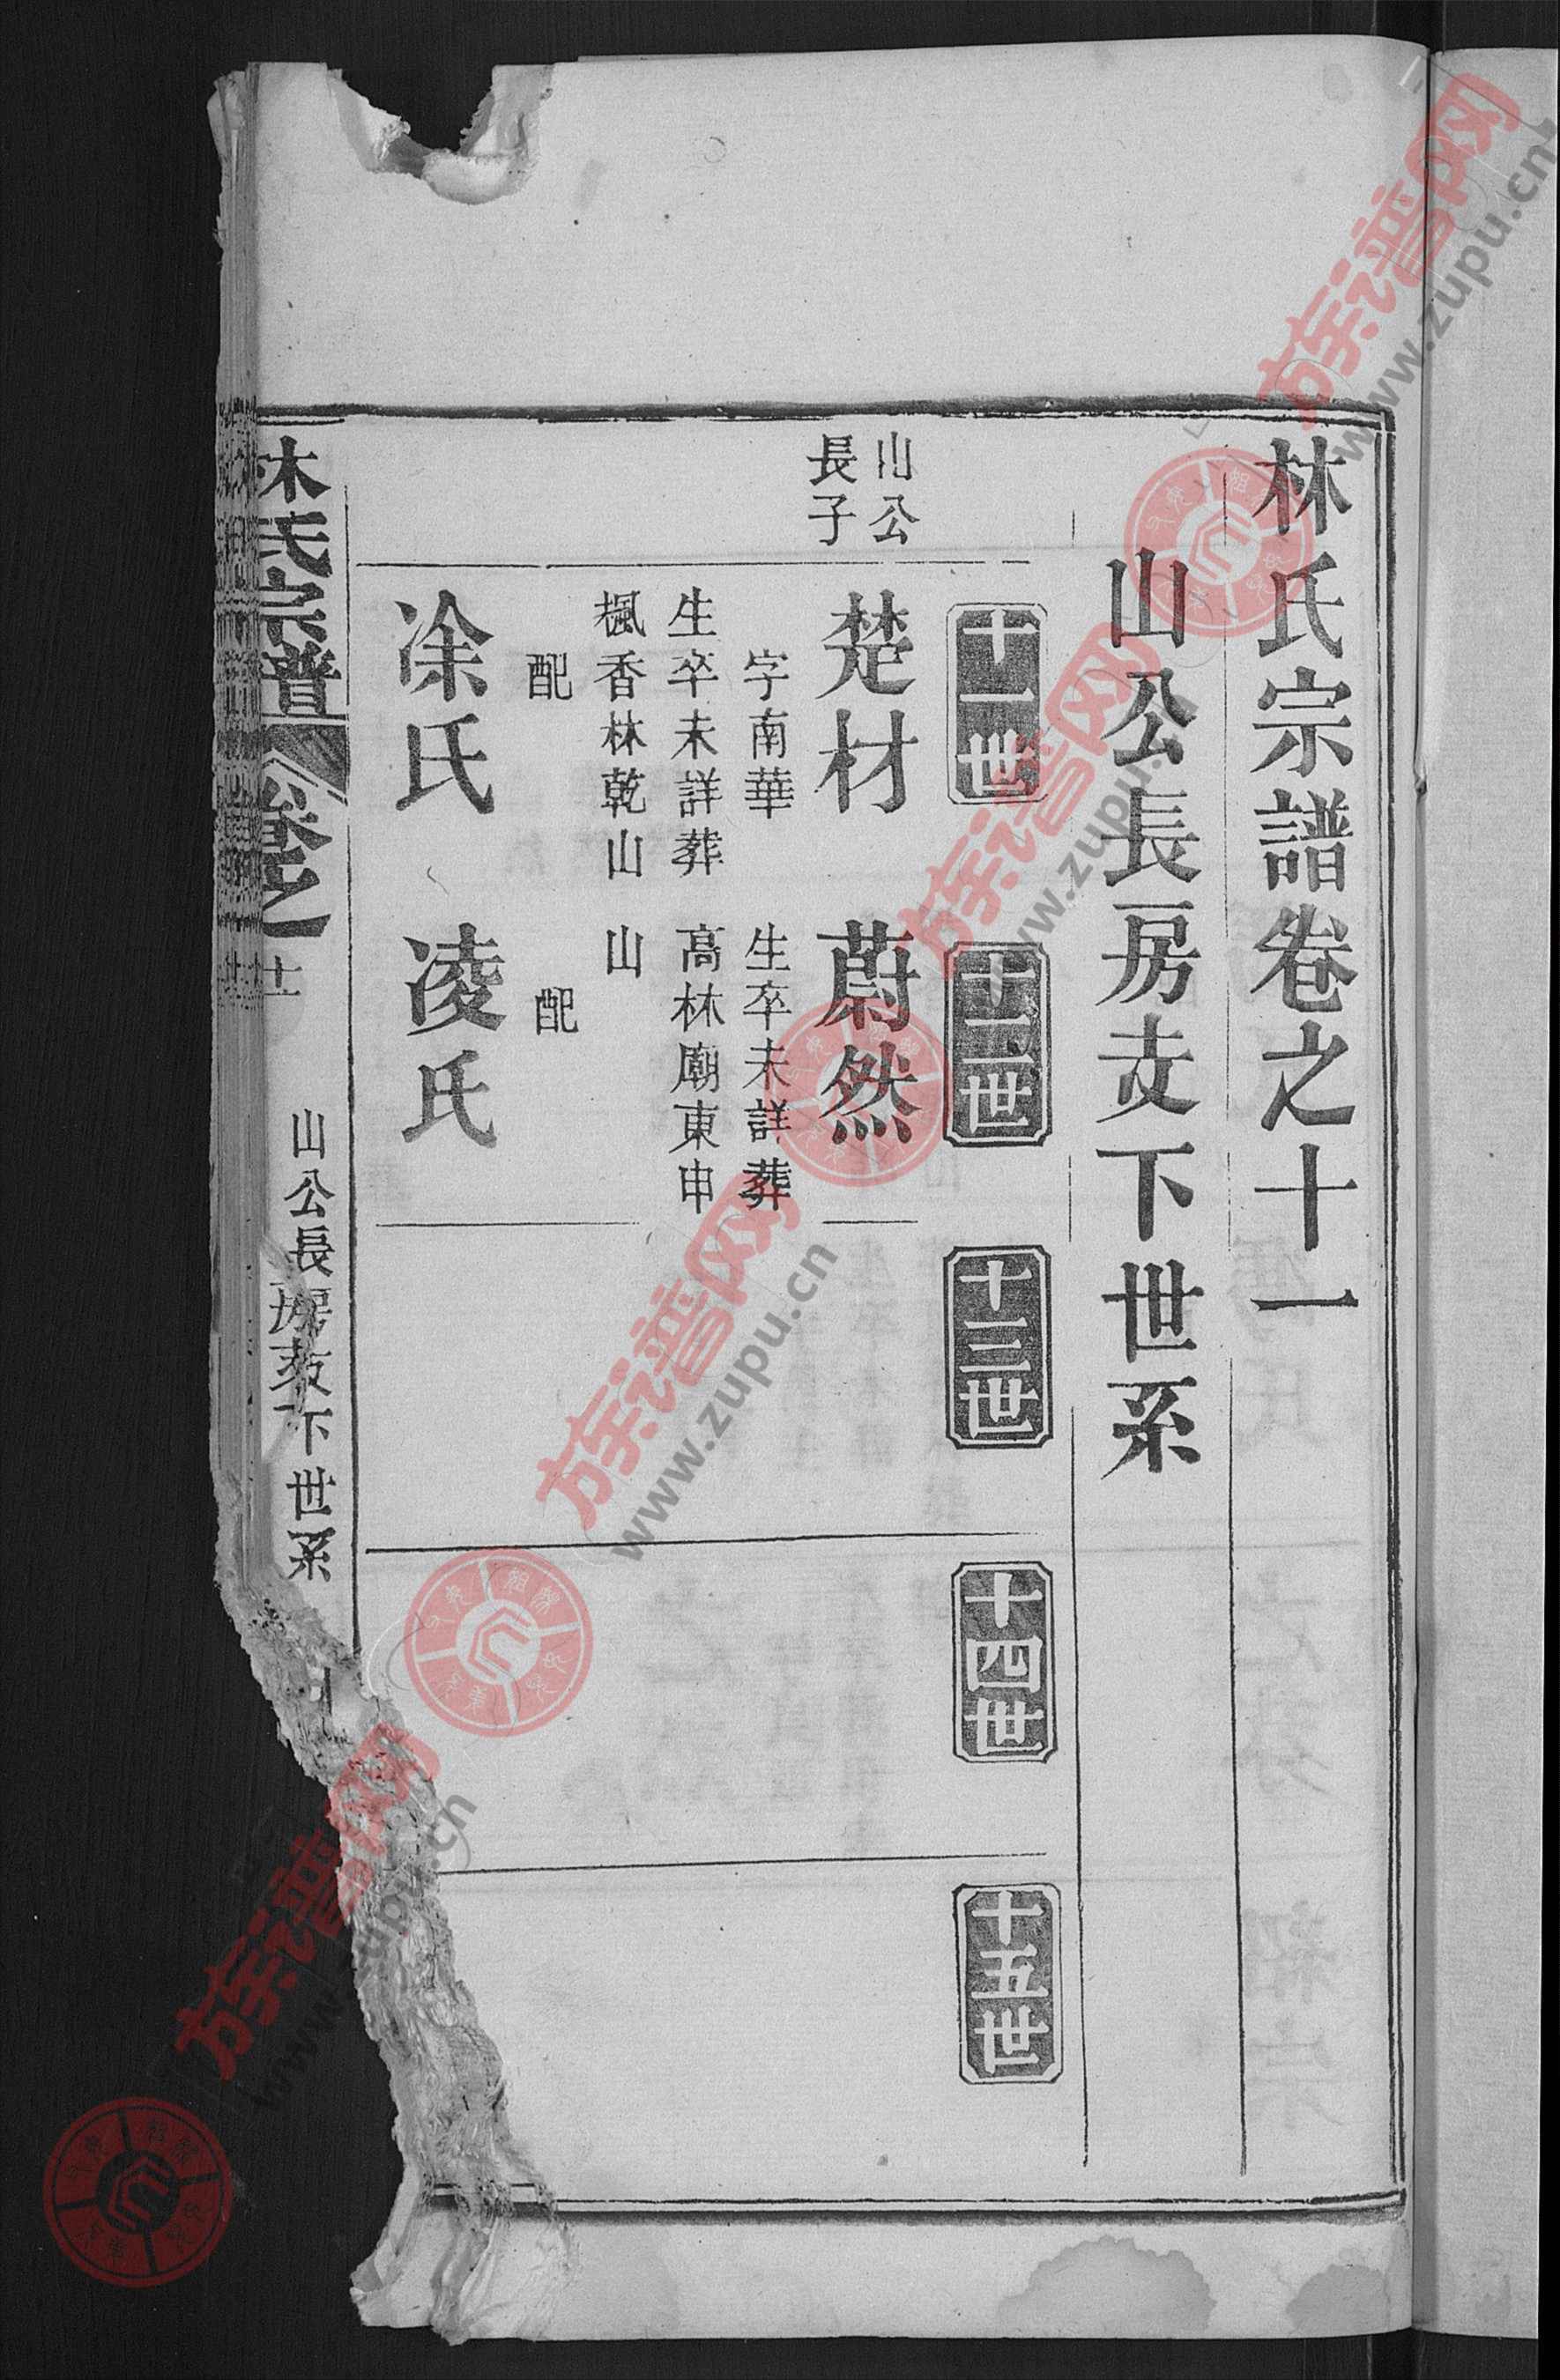 林氏宗譜卷之十一
山公長房支下世系
十一世
十二世
十三世
十四世
十五世
山公
長子
楚材
字南華
生卒未詳葬
楓香林乾山
配
凃氏
蔚然
生卒未詳葬
高林廟東申
山
配
凌氏
林氏宗譜
卷之
十一
山公長房支下世系
族谱网
www.zupu.cn
族谱网
www.zupu.cn
族谱网
www.zupu.cn
族谱网
www.zupu.cn